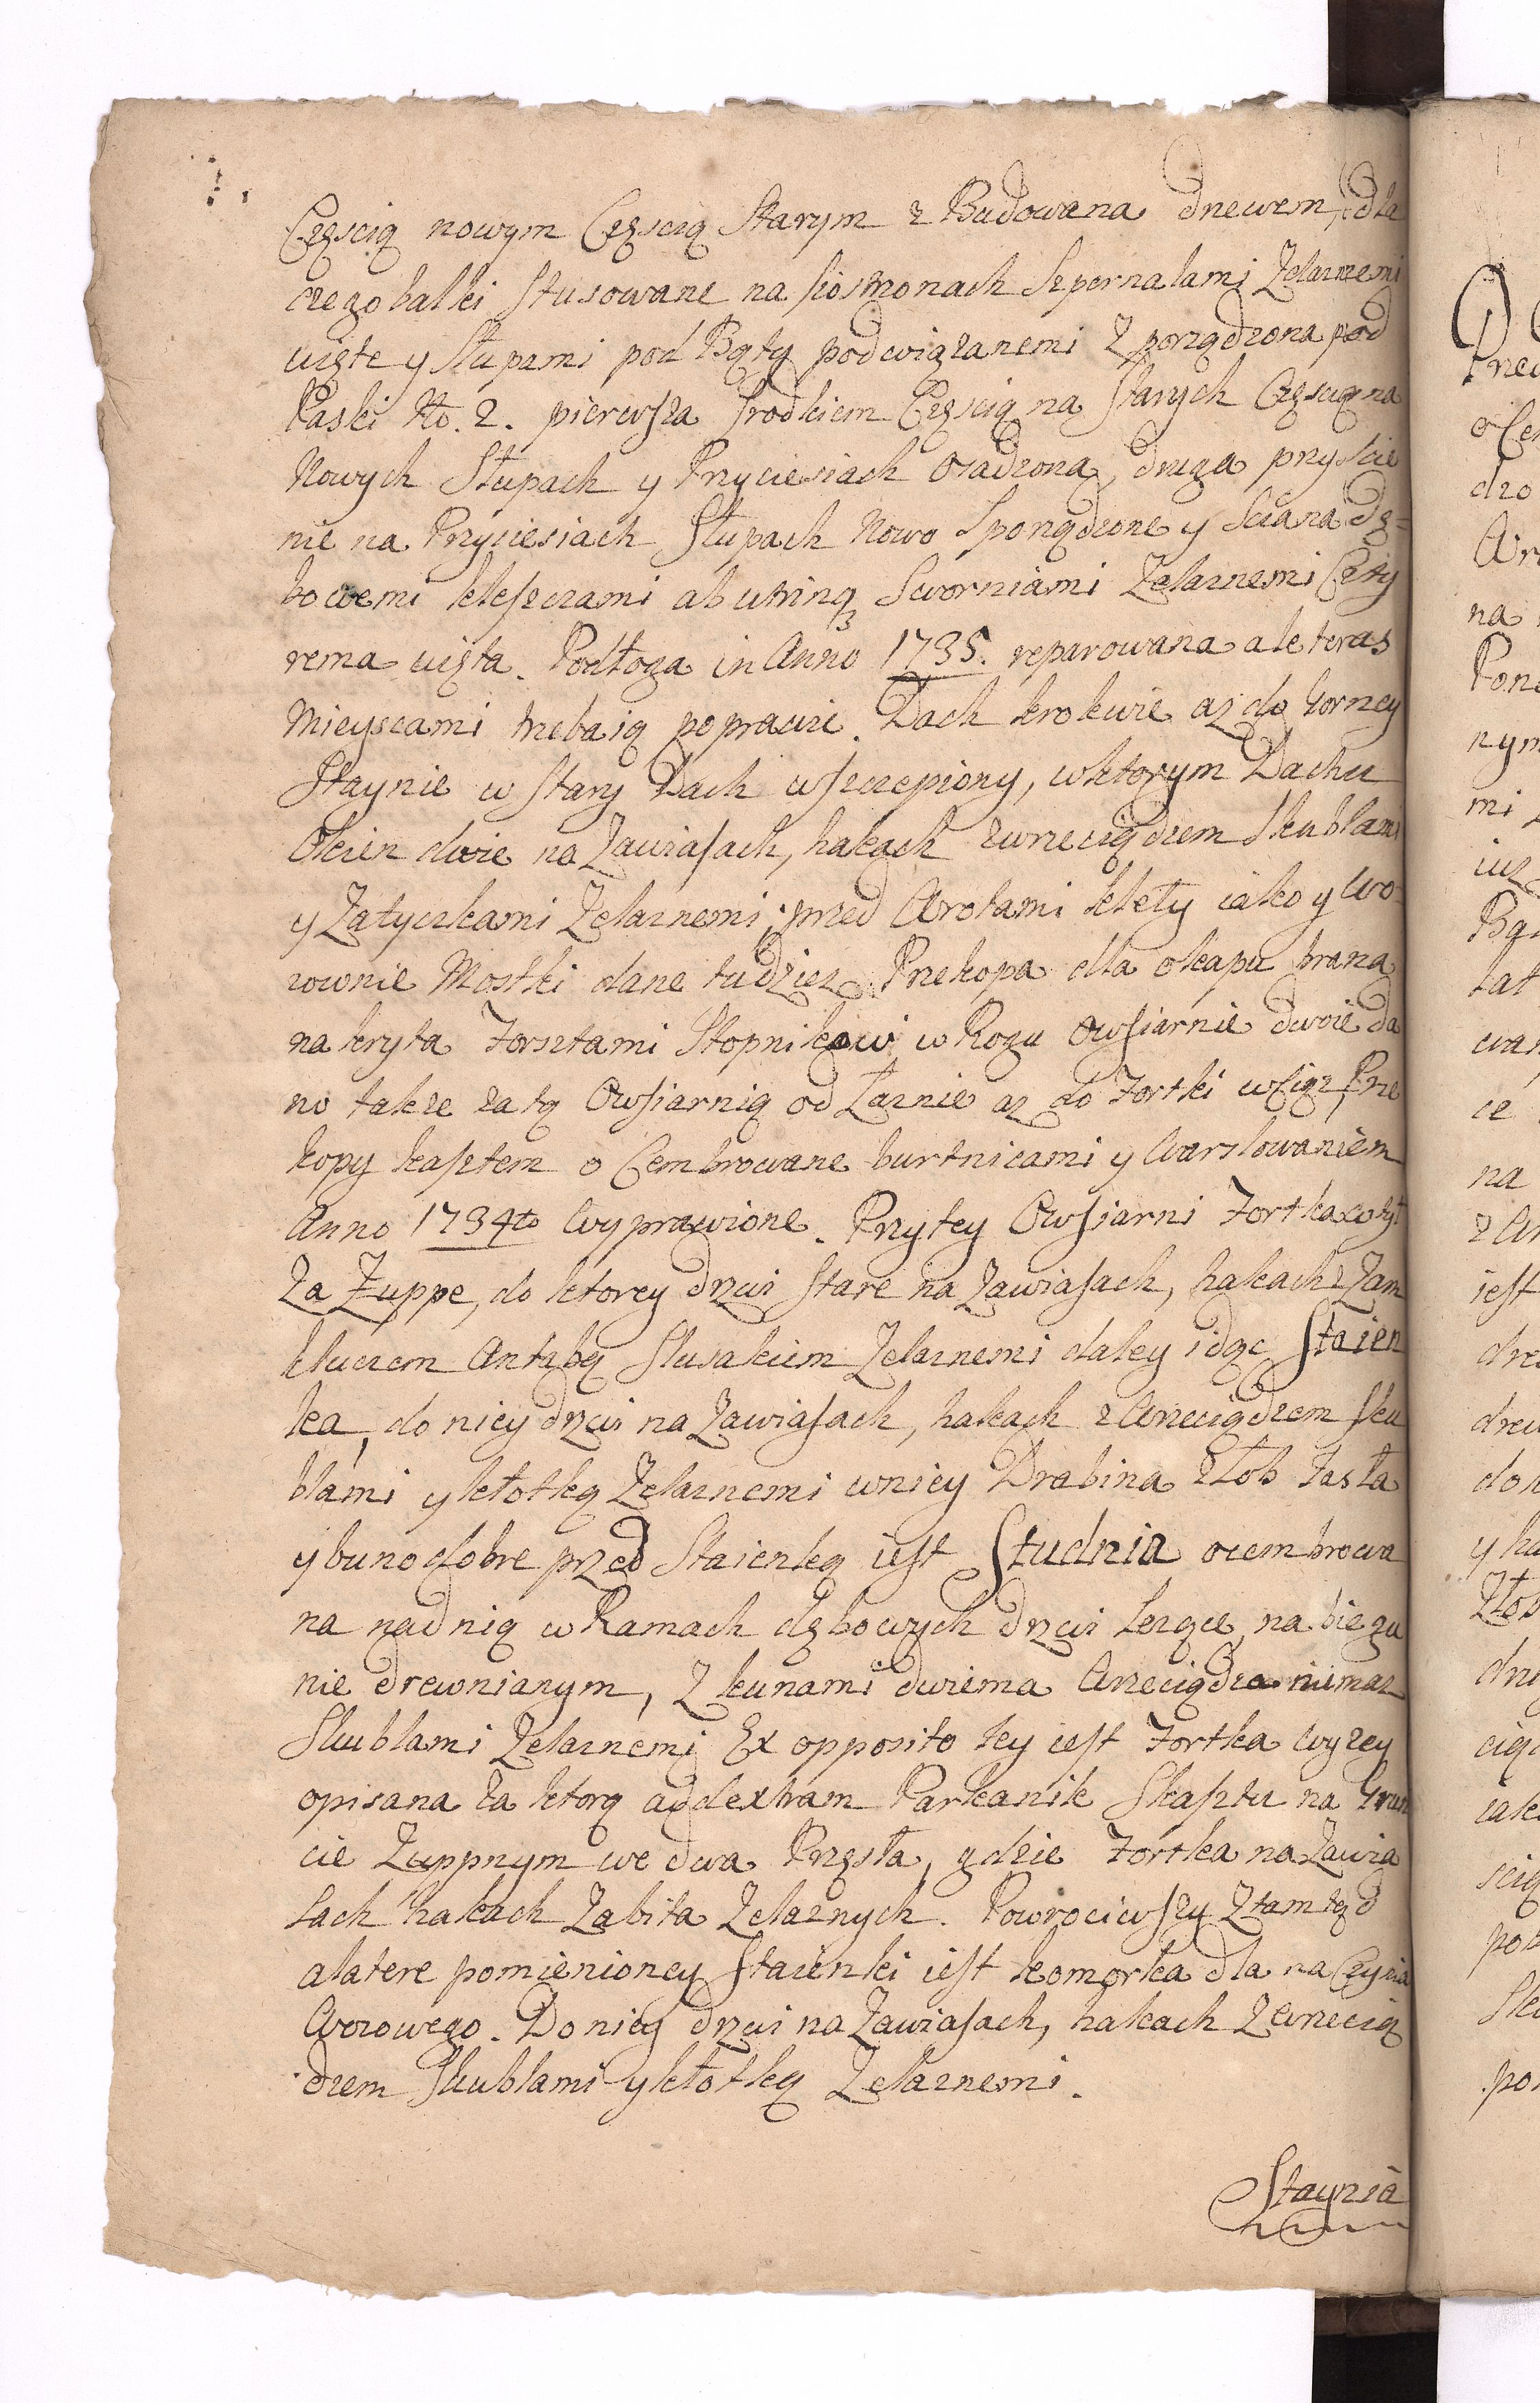 Częscią nowym Częscią Starym z Budowana drzewem, dla
czego balki sztusowane na siosmonach Szpernalami Zelaznemi
uięte y słupami pod Bąty podwiązanemi z porządzona pod
Paski No. 2. pierwsza srodkiem Częscią na starych Częscią na
Nowych Słupach y Przyciesiach osadzona, druga przyscie
nie na Przyciesiach Słupach Nowo Sporządzone y Sciana dę=
bowemi kleszczami ab utrinq3 Sworniami Zelaznemi Czty
rema uięta. Podłoga in Anno 1735. reparowana ale teras
Mieyscami trzeba ią poprawić. Dach krokwie az do Gorney
Staynie w stary Dach wszczepiony, w ktorym Dachu
Okien dwie na Zawiasach, hakach z wrzeciądzem Skublami
y Zatyczkami Zelaznemi; przed Wrotami klety iako y Wo-
zownie Mostki dane tudziez Przekopa dla okapu brana
nakryta Forsztami Stopnikow w Rogu Owsiarnie dwoie da
no takze za tą Owsiarnią od Łaznie az do Fortki wciąz, Prze
kopy kasztem o Cembrowane burtnicami y Warslowaniem
Anno 1734to Wyprawione. Przytey Owsiarni Fortka w tył
Za Zuppe, do ktorey drzwi stare na Zawiasach, hakach z Zam
kluczem Antabą Slusakiem Zelaznemi daley idąc Staien
ka, do niey drzwi na Zawiasach, hakach z Wrzeciądzem sku
blami y kłotką Zelaznemi w niey Drabina złob Jasła
y buno dobre przed Staienką iest Studnia ocembrowa
na nad nią w Ramach dębowych drzwi lezące na biegu
nie drewnianym, z kunami dwiema Wrzeciądza niemasz
Skublami Zelaznemi Ex opposito tey iest Fortka wyzey
opisana za ktorą ad dextram Parkanik Skasztu na Grun
cie Zuppnym we dwa Przęsła, gdzie Fortka na Zawia
sach hakach Zabita Zelaznych. Powrociwszy Ztamtęd
alatere pomienioney Staienki iest komorka dla naczynia
Wozowego. Do niey drzwi na Zawiasach, hakach z Wrzecią
dzem Skublami y kłotką Zelaznemi.
Staynia